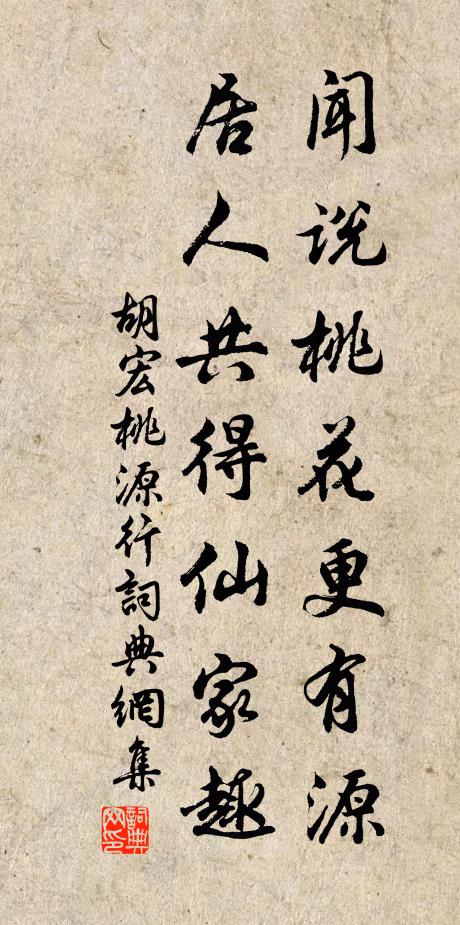 闻说桃花更有源
居人共得仙家趣
胡宏桃源行詞典網集
詞典
网印